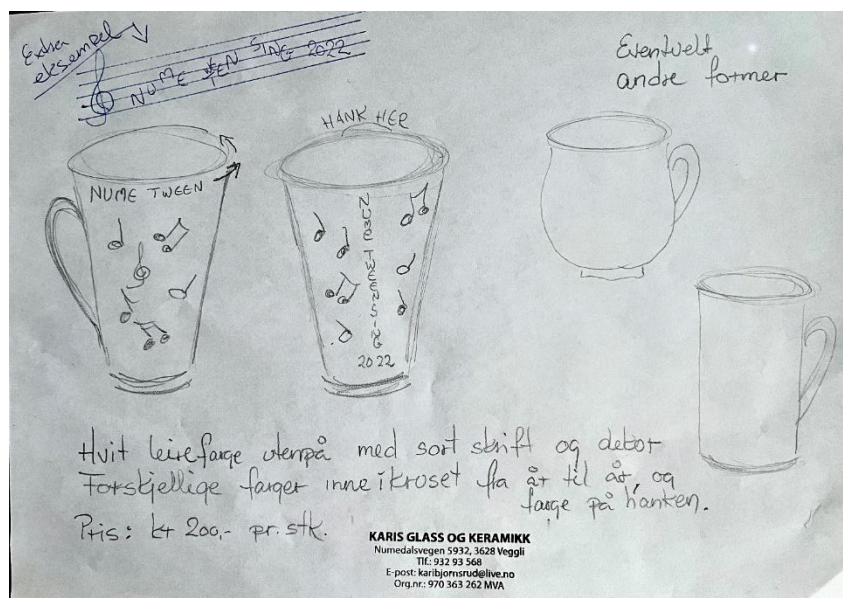 Extra
eksempel
NUME TEN SING 2022
Eventuelt
andre former
HANK HER
NUME TWEEN
NUME TWEENSING
2022
Hvit leirefarge utenpå med sort skrift og dekor
Forskjellige farger inne i kruset fra år til år, og
farge på hanken.
Pris: kr 200,- pr. stk.
KARIS GLASS OG KERAMIKK
Numedalsvegen 5932, 3628 Veggli
Tlf.: 932 93 568
E-post: karibjornsrud@live.no
Org.nr.: 970 363 262 MVA